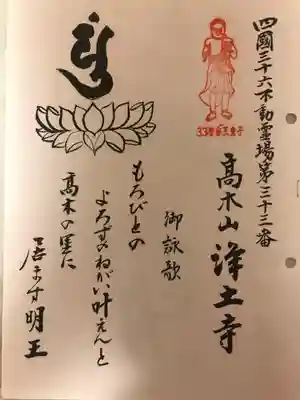 四國三十六不動靈場第三十三番
髙木山 淨土寺
御詠歌
もろびとの
よろずのねがい叶えんと
髙木の里に
居ます明王